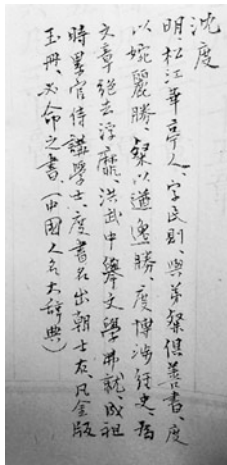 沈度
明、松江華亭人、字民則、與弟粲俱善書、度
以婉麗勝、粲以遒逸勝、度博涉經史、爲
文章絕去浮靡、洪武中舉文學弗就、成祖
時累官侍講學士、度書名出朝士右、凡金版
玉冊、必命之書、（中國人名大辞典）